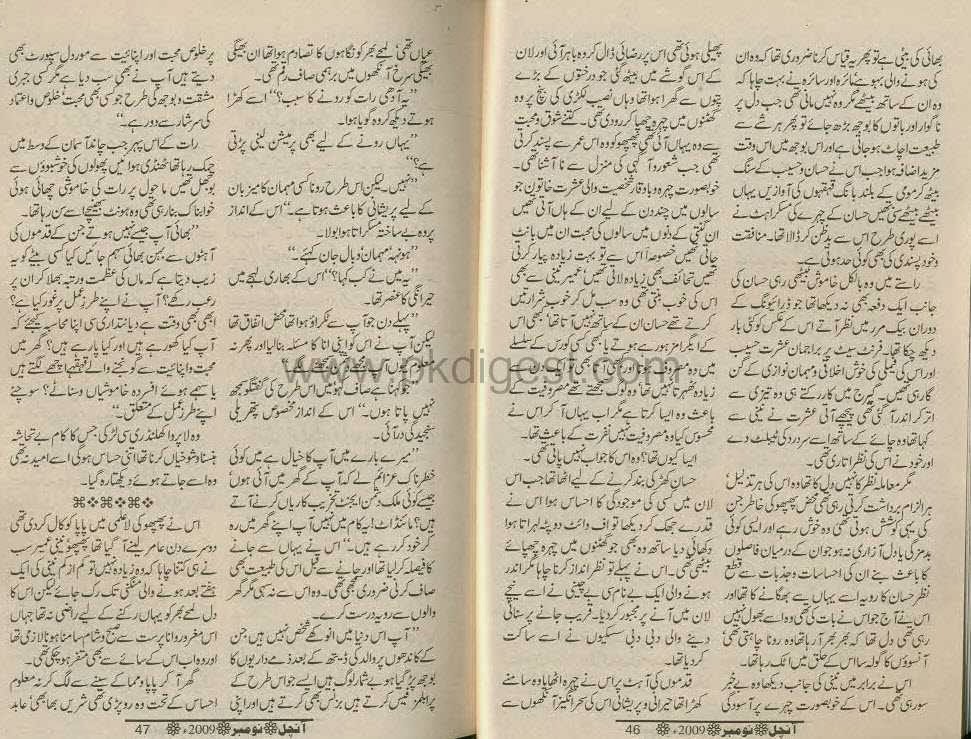 بھائی کی بیٹی ہے تو پھر یہ قیاس کرنا ضروری تھا کہ وہ ان
کی ہونے والی بہو بنے نائزہ اور سائرہ نے بہت چاہا کہ
وہ ان کے ساتھ بیٹھے مگر وہ نہیں مانی تھی جب دل پر
ناگوار اور باتوں کا بوجھ بڑھ جائے تو پھر ہر شے سے
طبیعت اچاٹ ہو جاتی ہے اور اس بوجھ میں اس وقت
مزید اضافہ ہوا جب اس نے حسان وحسیب کے سنگ
بیٹھ کر مومی کے بلند بانگ قہقہوں کی آوازیں یہاں
بیٹھے بیٹھے سنی تھیں حسان کے چہرے کی مسکراہٹ نے
اسے پوری طرح اس سے بدظن کر ڈالا تھا۔ منافقت
وخود پسندی کی بھی کوئی حد ہوتی ہے۔
راستے میں وہ بالکل خاموش بیٹھی رہی حسان کی
جانب ایک دفعہ بھی نہ دیکھا تھا جو ڈرائیونگ کے
دوران بیک مرر میں نظر آتے اس کے عکس کو کئی بار
دیکھ چکا تھا۔ فرنٹ سیٹ پر براجمان عشرت حسیب
اور اس کی فیملی کی خوش اخلاقی ومہمان نوازی کے گن
گا رہی تھیں۔ گیرج میں کار رکتے ہی وہ تیزی سے
اتر کر اندر آ گئی تھی پیچھے آتی عشرت نے نینی سے
کہا تھا وہ چائے کے ساتھ اسے سردرد کی ٹیبلٹ دے
اور خود نے اس کی نظر اتاری تھی۔
مگر معاملہ نظر کا نہیں دل کا تھا وہ اس کی ہر تذلیل
ہر الزام برداشت کرتی رہی تھی محض پھپھو کی خاطر جن
کی یہی کوشش ہوتی تھی وہ خوش رہے اور ایسی کوئی
بدمزگی یا دل آزاری نہ ہو جو ان کے درمیان فاصلوں
کا باعث بنے ان کی احساسات وجذبات سے قطع
نظر حسان کا رویہ اسے یہاں سے بھگانے کا تھا اور
اس نے آج جو اس نے بات کی تھی وہ اسے بھول نہیں
رہی تھی دل تھا کہ بھر بھر آ رہا تھا وہ رونا چاہتی تھی
آنسوؤں کا گولہ سا اس کے حلق میں اٹک رہا تھا۔
اس نے برابر میں نینی کی جانب دیکھا وہ بے خبر
سو رہی تھی۔ اس کے خوبصورت چہرے پر آسودگی
پھیلی ہوئی تھی اس پر رضائی ڈال کر وہ باہر آئی اور لان
کے اس گوشے میں بیٹھ گئی جو درختوں کے بڑے
پتوں سے گھرا ہوا تھا وہاں نصیب لکڑی کی بنچ پر وہ
گھٹنوں میں چہرہ چھپا کر رو دی تھی۔ کتنے شوق و محبت
سے وہ یہاں آئی تھی پھپھو کو وہ اس عمر سے پسند کرتی
تھی جب شعور آگہی کی منزل سے نا آشنا تھی۔
خوبصورت چہرہ وباوقار شخصیت والی عشرت خاتون جو
سالوں میں چند دن کے لیے ان کے ہاں آتی تھیں
ان گنتی کے دنوں میں سالوں کی محبت ان میں بانٹ
جاتی تھیں خصوصاً اس سے تو بہت زیادہ پیار کرتی
تھیں تحائف بھی زیادہ لاتی تھیں عمیر نینی سے بھی
اس کی خوب بنتی تھی وہ سب مل کر خوب شرارتیں
کرتے تھے حسان ان کے ساتھ نہیں آتا تھا کبھی اس
کے ایگزامز ہو رہے ہوتے یا کبھی کسی کورس کے سلسلے
میں وہ مصروف ہوتا اور کبھی آ بھی جاتا تو ایک دن سے
زیادہ ٹھہرتا نہیں تھا۔ وہ لوگ سمجھتے تھے مصروفیت کے
باعث وہ ایسا کرتا ہے مگر اب یہاں آ کر اس نے
محسوس کیا وہ مصروفیت نہیں نفرت کے باعث تھا۔
ایسا کیوں تھا؟ وہ اس کا جواب نہیں پاتی تھی۔
حسان کھڑکی بند کرنے کے لیے اٹھا تھا جب اس
لان میں کسی کی موجودگی کا احساس ہوا اس نے
قدرے جھک کر دیکھا تو اف وائٹ دوپٹہ لہراتا ہوا
دکھائی دیا ساتھ وہ بھی جو گھٹنوں میں چہرہ چھپائے
بیٹھی تھی۔ اس نے پہلے تو نظر انداز کرنا چاہا مگر اندر
ہونے والی ایک بے نام سی بے چینی نے اسے نیچے
لان میں آنے پر مجبور کر دیا۔ قریب جانے پر سنائی
دینے والی دبی دبی سسکیوں نے اسے ساکت
کر دیا تھا۔
قدموں کی آہٹ پر اس نے چہرہ اٹھایا وہ سامنے
کھڑا تھا حیرانی و پریشانی اس کی سحر انگیز آنکھوں سے
آنچل نومبر 2009ء 46
عیاں تھی لمحے بھر کو نگاہوں کا تصادم ہوا تھا ان بھیگی
بھیگی سرخ آنکھوں میں برہمی صاف رقم تھی۔
"یہ آدھی رات کو رونے کا سبب؟" اسے کھڑا
ہوتے دیکھ کر وہ گویا ہوا۔
"یہاں رونے کے لیے بھی پرمیشن لینی پڑتی
ہے؟"
"نہیں۔ لیکن اس طرح رونا کسی مہمان کا میزبان
کے لیے پریشانی کا باعث ہوتا ہے۔" اس کے انداز
پر وہ بے ساختہ مسکراتا ہوا بولا۔
"ہونہہ مہمان، وبال جان کہئے۔"
"یہ میں نے کب کہا؟" اس کے بھاری لہجے میں
حیرانگی کا عنصر تھا۔
"پہلے دن جو آپ سے ٹکراؤ ہوا تھا محض اتفاق تھا
لیکن آپ نے اس کو اپنی انا کا مسئلہ بنا لیا اور پھر نہ
معلوم کیوں اس قدر خطرناک عزائم سمجھ گئے؟"
"جو کہنا ہے صاف کہو میں اس طرح کی گفتگو سمجھ
نہیں پاتا ہوں۔" اس کے انداز مخصوص پتھریلی
سنجیدگی در آئی۔
"میرے بارے میں آپ کا خیال ہے میں کوئی
خطرناک عزائم لے کر آپ کے گھر میں آئی ہوں
جیسے کوئی ملک دشمن ایجنٹ تخریب کاریاں کرنے آتے
ہیں؟ مائنڈ اٹ! یہ کام میں نہیں آپ اپنے گھر میں رہ
کر خود کر رہے ہیں۔" اس نے یہاں سے جانے
کا فیصلہ کر لیا تھا اور جانے سے قبل اس کی طبیعت بھی
صاف کرنی ضروری سمجھی تھی۔ وہ اس سے نہ سہی مگر گھر
والوں سے رویہ درست کرے۔
"آپ اس دنیا میں انوکھے شخص نہیں ہیں جن
کے کاندھوں پر والد کی ڈیتھ کے بعد ذمے داریوں کا
بوجھ پڑ گیا ہو بے شمار لوگ ہیں ایسے جو اس طرح کے
پرابلمز فیس کرتے ہیں بزنس بھی کرتے ہیں اور اپنی
پر خلوص محبت اور اپنائیت سے مورل سپورٹ بھی
دیتے ہیں آپ نے بھی سب دیا ہے مگر کسی جبری
مشقت و بوجھ کی طرح جو کسی بھی محبت خلوص و اعتماد
کی سرشار سے دور ہے۔"
رات کے اس پہر جب چاند آسمان کے وسط میں
چمک رہا تھا ٹھنڈی ہوائیں پھولوں کی خوشبوؤں سے
بوجھل تھیں ماحول پر رات کی خاموشی چھائی ہوئی
خوابناک بنا رہی تھی وہ ہونٹ بھینچے اسے سن رہا تھا۔
"بھائی آپ جیسے نہیں ہوتے جن کے قدموں کی
آہٹوں سے بہن بھائی سہم جائیں کیا کسی بیٹے کو یہ
زیب دیتا ہے کہ ماں کی عظمت و رتبہ بھلا کر ان پر
رعب رکھے؟ آپ نے اپنے طرز عمل پر غور کیا ہے؟
ابھی بھی وقت ہے دیانتداری سی اپنا محاسبہ کیجئے کہ
آپ کیا کھو رہے ہیں اور کیا پا رہے ہیں؟ گھر میں
محبت و اپنائیت سے گونجنے والے قہقہے اچھے لگتے ہیں
یا سہمے ہوئے افسردہ خاموشیاں و سناٹے؟ سوچئے
اپنے طرز عمل کے متعلق۔"
وہ لاپروا کھلنڈری سی لڑکی جس کا کام بے تحاشہ
ہنسنا و شوخیاں کرنا تھا اتنی حساس ہو گی اسے امید نہ تھی
وہ اسے جاتے ہوئے دیکھتا رہ گیا۔
اس نے پھپھو کی لاعلمی میں پاپا کو کال کر دی تھی
دوسرے دن عامر لینے آ گیا تھا پھپھو نینی عمیر سب
نے ہی کتنا چاہا کہ وہ زیادہ نہیں تو کم از کم نینی کی ایک
ہفتے بعد ہونے والی منگنی تک رک جائے لیکن اس کا
دل لمحے بھر کو یہاں رکنے کے لیے راضی نہ تھا جہاں
اس مغرور و انا پرست سے صبح و شام سامنا ہونا لازمی تھا
اور وہ اب اس کے سائے سے بھی متنفر ہو چکی تھی۔
گھر آ کر پاپا و مما کے سینے سے لگ کر نہ معلوم
احساس کے تحت وہ رو پڑی تھی شرمین بھابی عابد
آنچل نومبر 2009ء 47
www.pkdigest.com